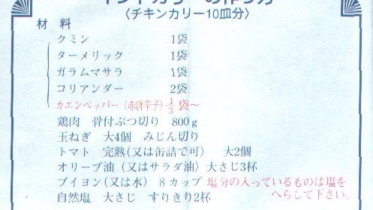 インドカリーの作り方
〈チキンカリー10皿分〉
材料
クミン 1袋
ターメリック 1袋
ガラムマサラ 1袋
コリアンダー 2袋
カエンペッパー(赤唐辛子) 1/3袋〜
鶏肉 骨付ぶつ切り 800g
玉ねぎ 大4個 みじん切り
トマト 完熟(又は缶詰で可) 大2個
オリーブ油(又はサラダ油)大さじ3杯
ブイヨン(又は水) 8カップ 塩分の入っているものは塩を
へらして下さい。
自然塩 大さじ すりきり2杯